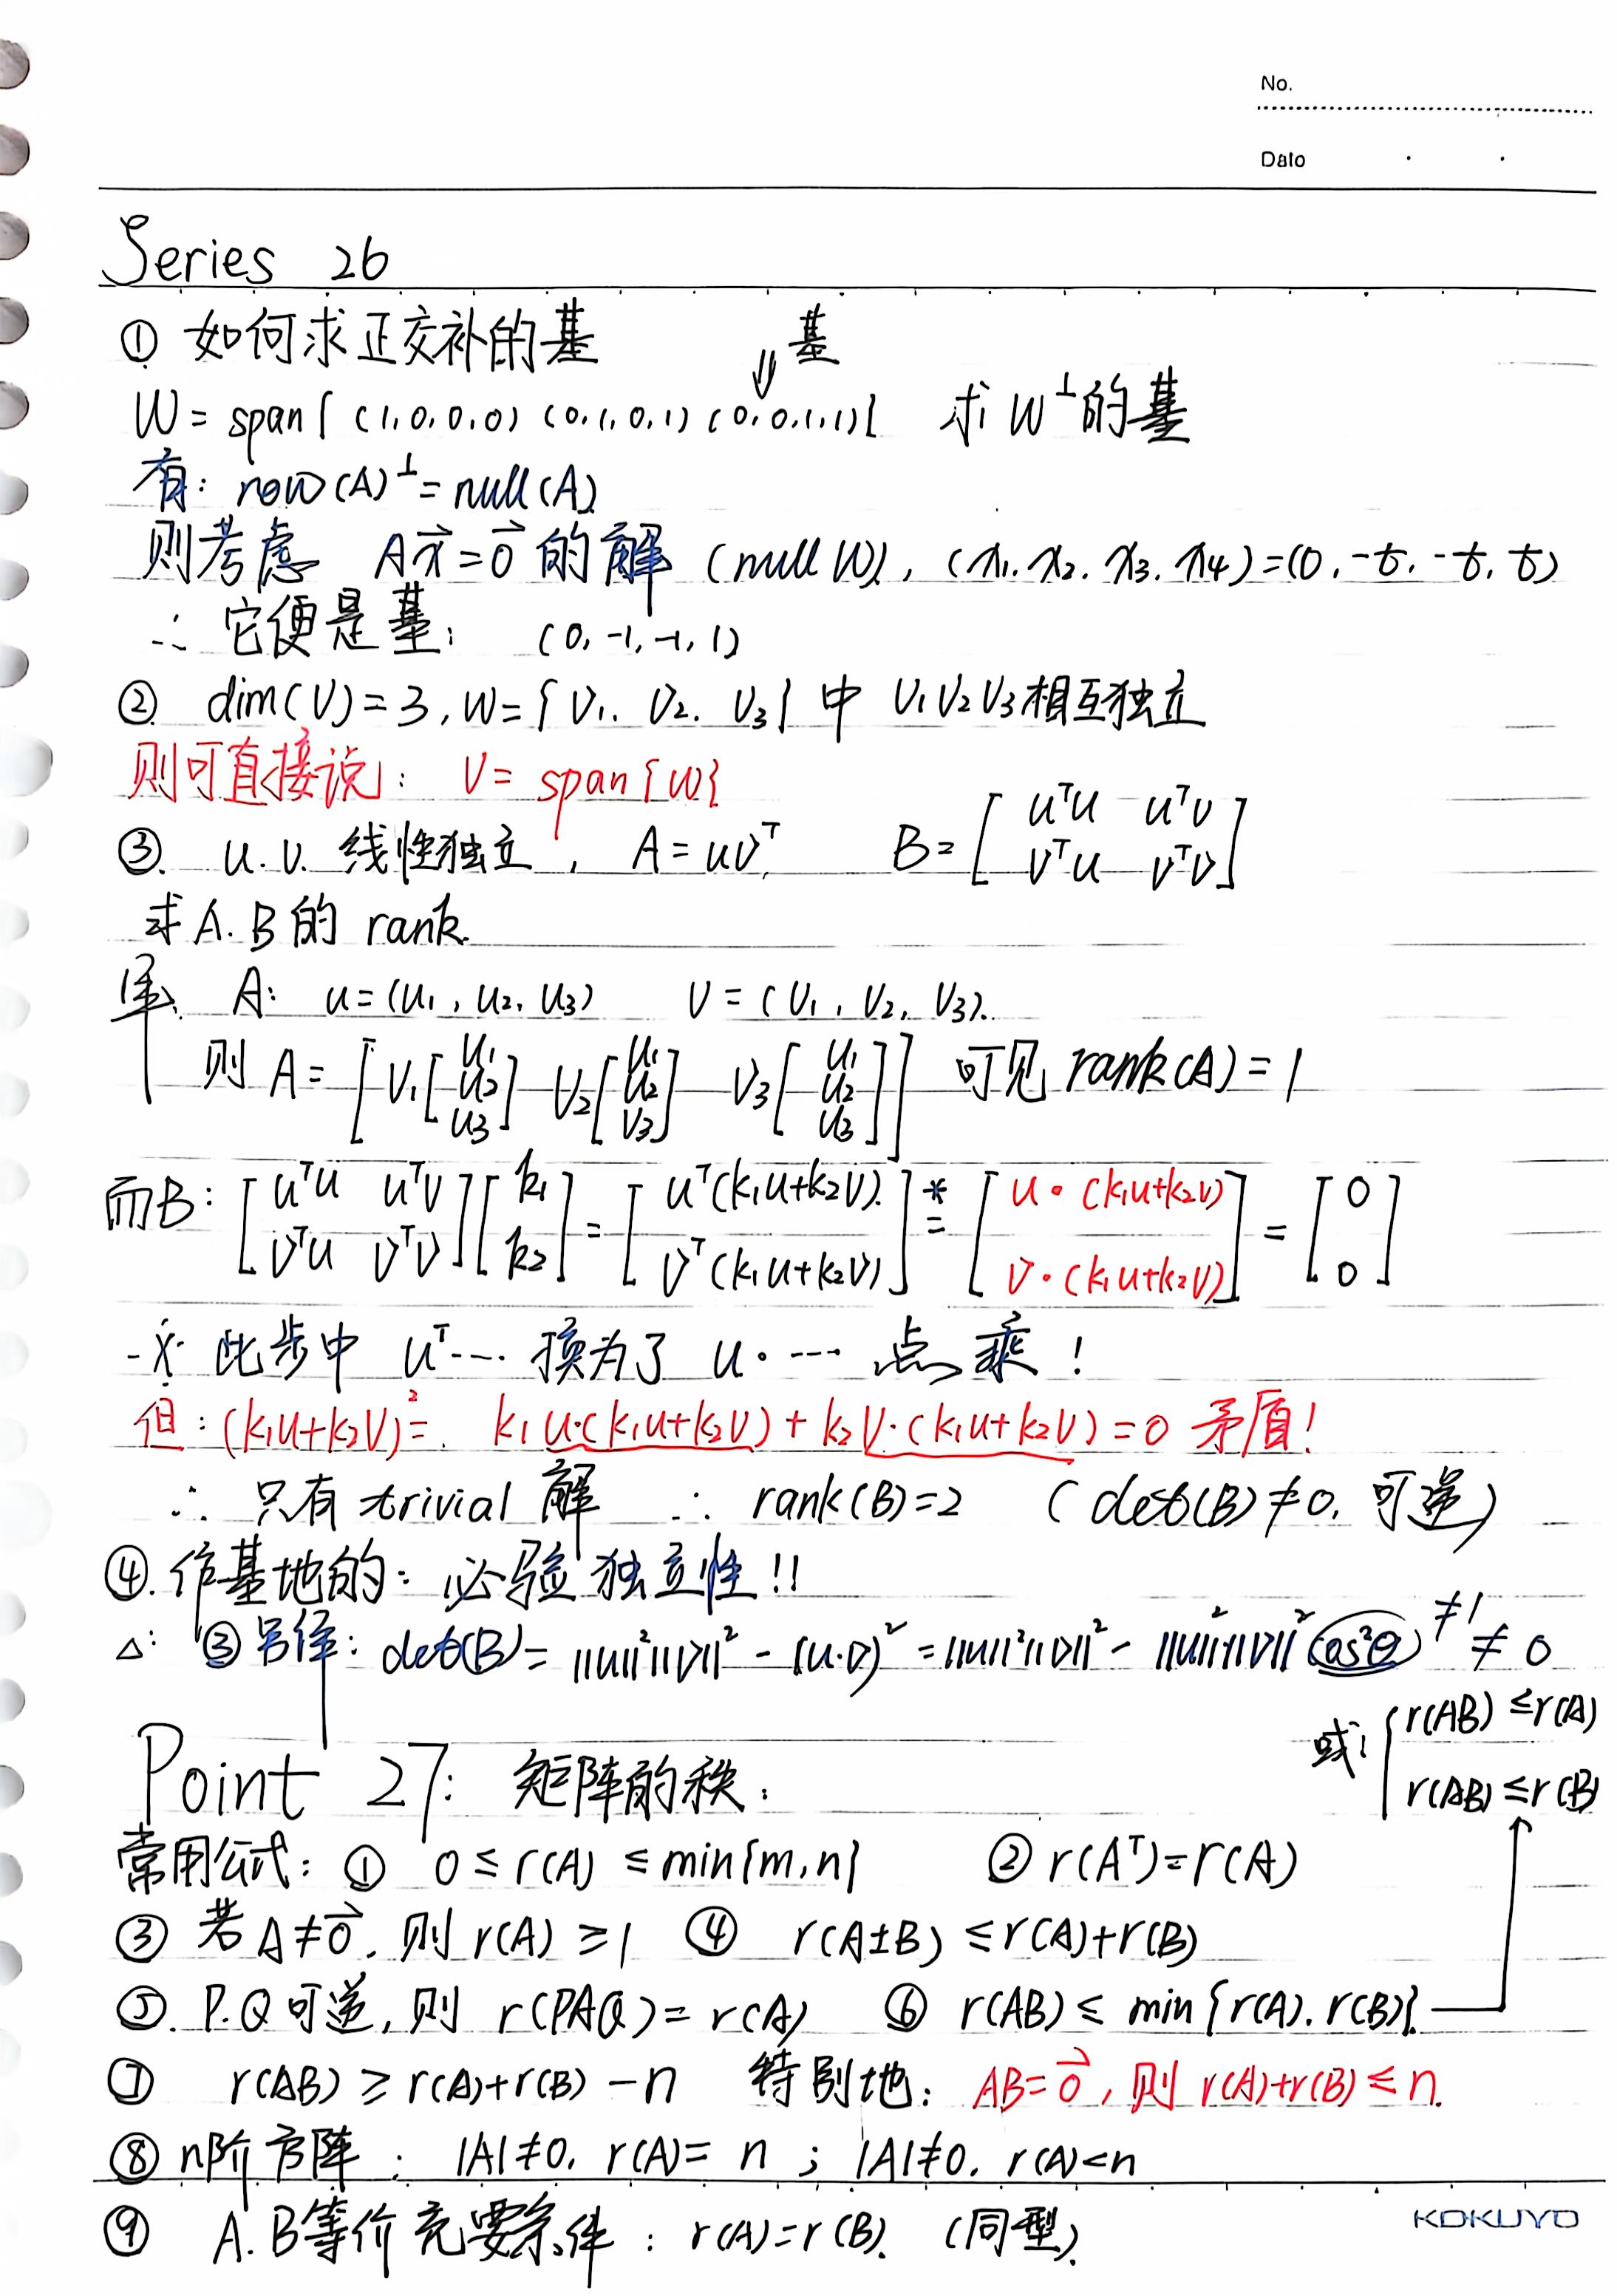 No.
Date
Series 26
① 如何求正交补的基
⇓ 基
W = span{ (1,0,0,0) (0,1,0,1) (0,0,1,1)} 求 W⊥的基
有: row(A)⊥ = null(A)
则考虑 Ax⃗ = 0⃗ 的解 (null W), (x₁. x₂. x₃. x₄) = (0, -t, -t, t)
∴ 它便是基: (0, -1, -1, 1)
② dim(V) = 3, W = {V₁. V₂. V₃} 中 V₁V₂V₃相互独立
则可直接说: V = span{W}
③. u.v. 线性独立, A = uvᵀ, B = [uᵀu uᵀv; vᵀu vᵀv]
求A.B的 rank.
A: u = (u₁, u₂, u₃) V = (V₁, V₂, V₃).
则 A = [V₁[u₁ u₂ u₃] V₂[u₁ u₂ v₃] V₃[u₁ u₂ u₃]] 可见 rank(A) = 1
而B: [uᵀu uᵀv; vᵀu vᵀv][k₁; k₂] = [uᵀ(k₁u+k₂v). ; vᵀ(k₁u+k₂v)] *= [u·(k₁u+k₂v); v·(k₁u+k₂v)] = [0; 0]
※ 此步中 uᵀ… 换为了 u·… 点乘!
但: (k₁u+k₂v)² = k₁u·(k₁u+k₂v) + k₂v·(k₁u+k₂v) = 0 矛盾!
∴ 只有 trivial 解 ∴ rank(B)=2 (det(B)≠0, 可逆)
④. 作基地的: 必验独立性!!
△: ③另解: det(B) = ||u||²||v||² - (u·v)² = ||u||²||v||² - ||u||²||v||² cos²θ ≠1 ≠ 0
Point 27: 矩阵的秩:
或: { r(AB) ≤ r(A)
r(AB) ≤ r(B)
常用公式: ① 0 ≤ r(A) ≤ min{m,n} ② r(Aᵀ)=r(A)
③ 若A≠0⃗, 则 r(A) ≥ 1 ④ r(A±B) ≤ r(A)+r(B)
⑤. P.Q可逆, 则 r(PAQ) = r(A) ⑥ r(AB) ≤ min{r(A). r(B)}.
⑦ r(AB) ≥ r(A)+r(B) - n 特别地: AB=0⃗, 则 r(A)+r(B) ≤ n.
⑧ n阶方阵: |A|≠0, r(A)= n ; |A|≠0, r(A)<n
⑨ A.B等价充要条件: r(A)=r(B). (同型).
KOKUYO